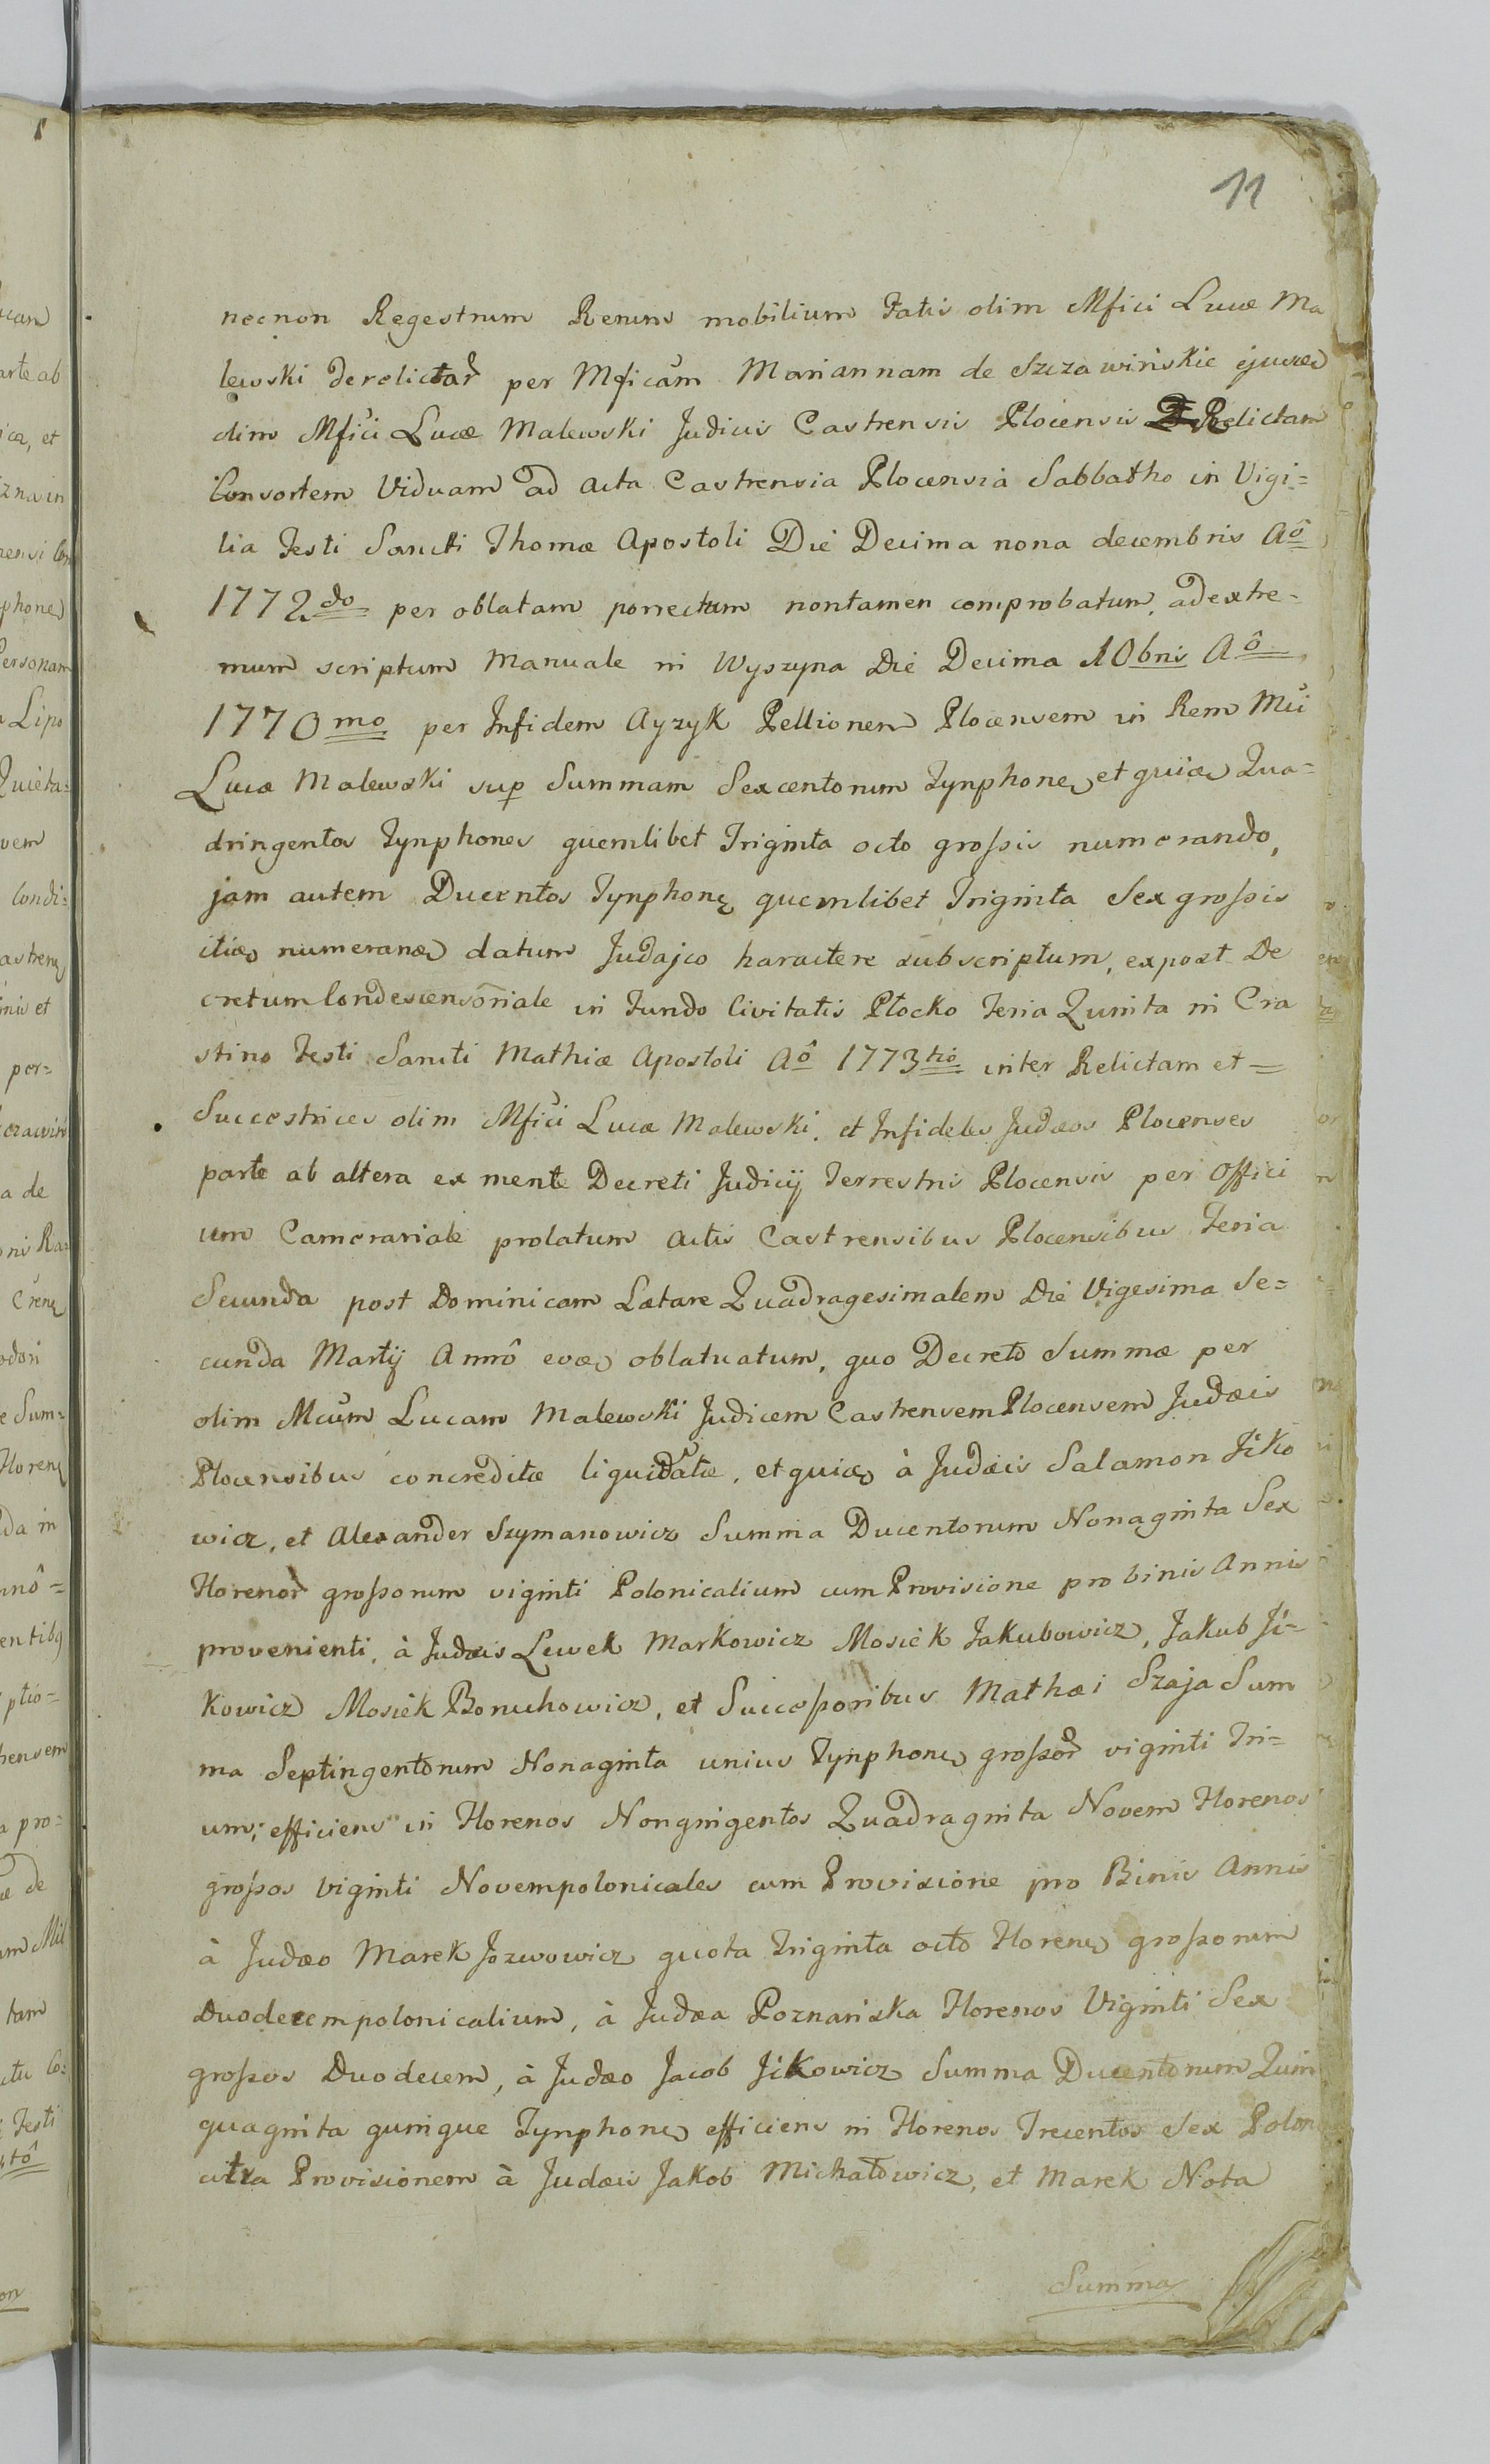 11
necnon Regestrum Rerum mobilium Fatis olim Mfici Lucæ Ma
lewski derelictar per Mficam Mariannam de Szczawińskie ejusd
olim Mfici Lucæ Malewski Judicis Castrensis Plocensis Relictam
Consortem Viduam ad acta Castrensia Plocensia Sabbatho in Vigi=
lia Festi Sancti Thomæ Apostoli Die Decima nona decembris Aô
1772do per oblatam porrectum nontamen comprobatum, adextre=
mum scriptum Manuale in Wyszyna Die Decima 10bris Aô
1770mo per Infidem Ayzyk Pellionem Plocensem in Rem Mci
Lucæ Malewski sup Summam Sexcentorum Tynphone et Qua=
dringentos Tynphones quemlibet Triginta octo grossis numerando,
jam autem Ducentos Tynphone quemlibet Triginta Sex grossis
numerand datum Judajco haractere subscriptum, expost De
cretum Condescensoriale in Fundo Civitatis Płocko Feria Quinta in Cra
stino Festi Sancti Mathiæ Apostoli Aô 1773tio inter Relictam et=
Succestrices olim Mfici Lucæ Malewski, et Infideles Judæos Plocenses
parte ab altera ex mente Decreti Judicij Terrestris Plocensis per Offici
um Camerariale prolatum actis Castrensibus Plocensibus Feria
Secunda post Dominicam Lætare Quadragesimalem Die Vigesima Se=
cunda Martij Annô eod oblatuatum, quo Decreto Summæ per
olim Mcum Lucam Malewski Judicem Castrensem Plocensem Judæis
Plocensibus concreditæ liquidatæ, et à Judæis Salamon Jćko
wicz, et Alexander Szymanowicz Summa Ducentorum Nonaginta Sex
Florenor grossorum viginti Polonicalium cum Provisione pro binis Annis
provenienti, à Judæis Lewek Markowicz Mosiek Jakubowicz, Jakub Jć=
kowicz Mosiek Boruchowicz, et Successoribus Mathæi Szaja Sum
ma Septingentorum Nonaginta unius Tynphone grossor viginti Tri=
um, efficiens in Florenos Nongingentos Quadraginta Novem Florenos
grossos viginti Novem polonicales cum Provisione pro Binis Annis
à Judæo Marek Jozwowicz quota Triginta octo Floren grossorum
Duodecem polonicalium, à Judæa Poznańska Florenos Viginti Sex
grossos Duodecem, à Judæo Jacob Jćkowicz Summa Ducentorum Quin
quaginta quinque Tynphone efficiens in Florenos Trecentos Sex Polon
citra Provisionem à Judæis Jakob Michałowicz, et Marek Nota
Summa